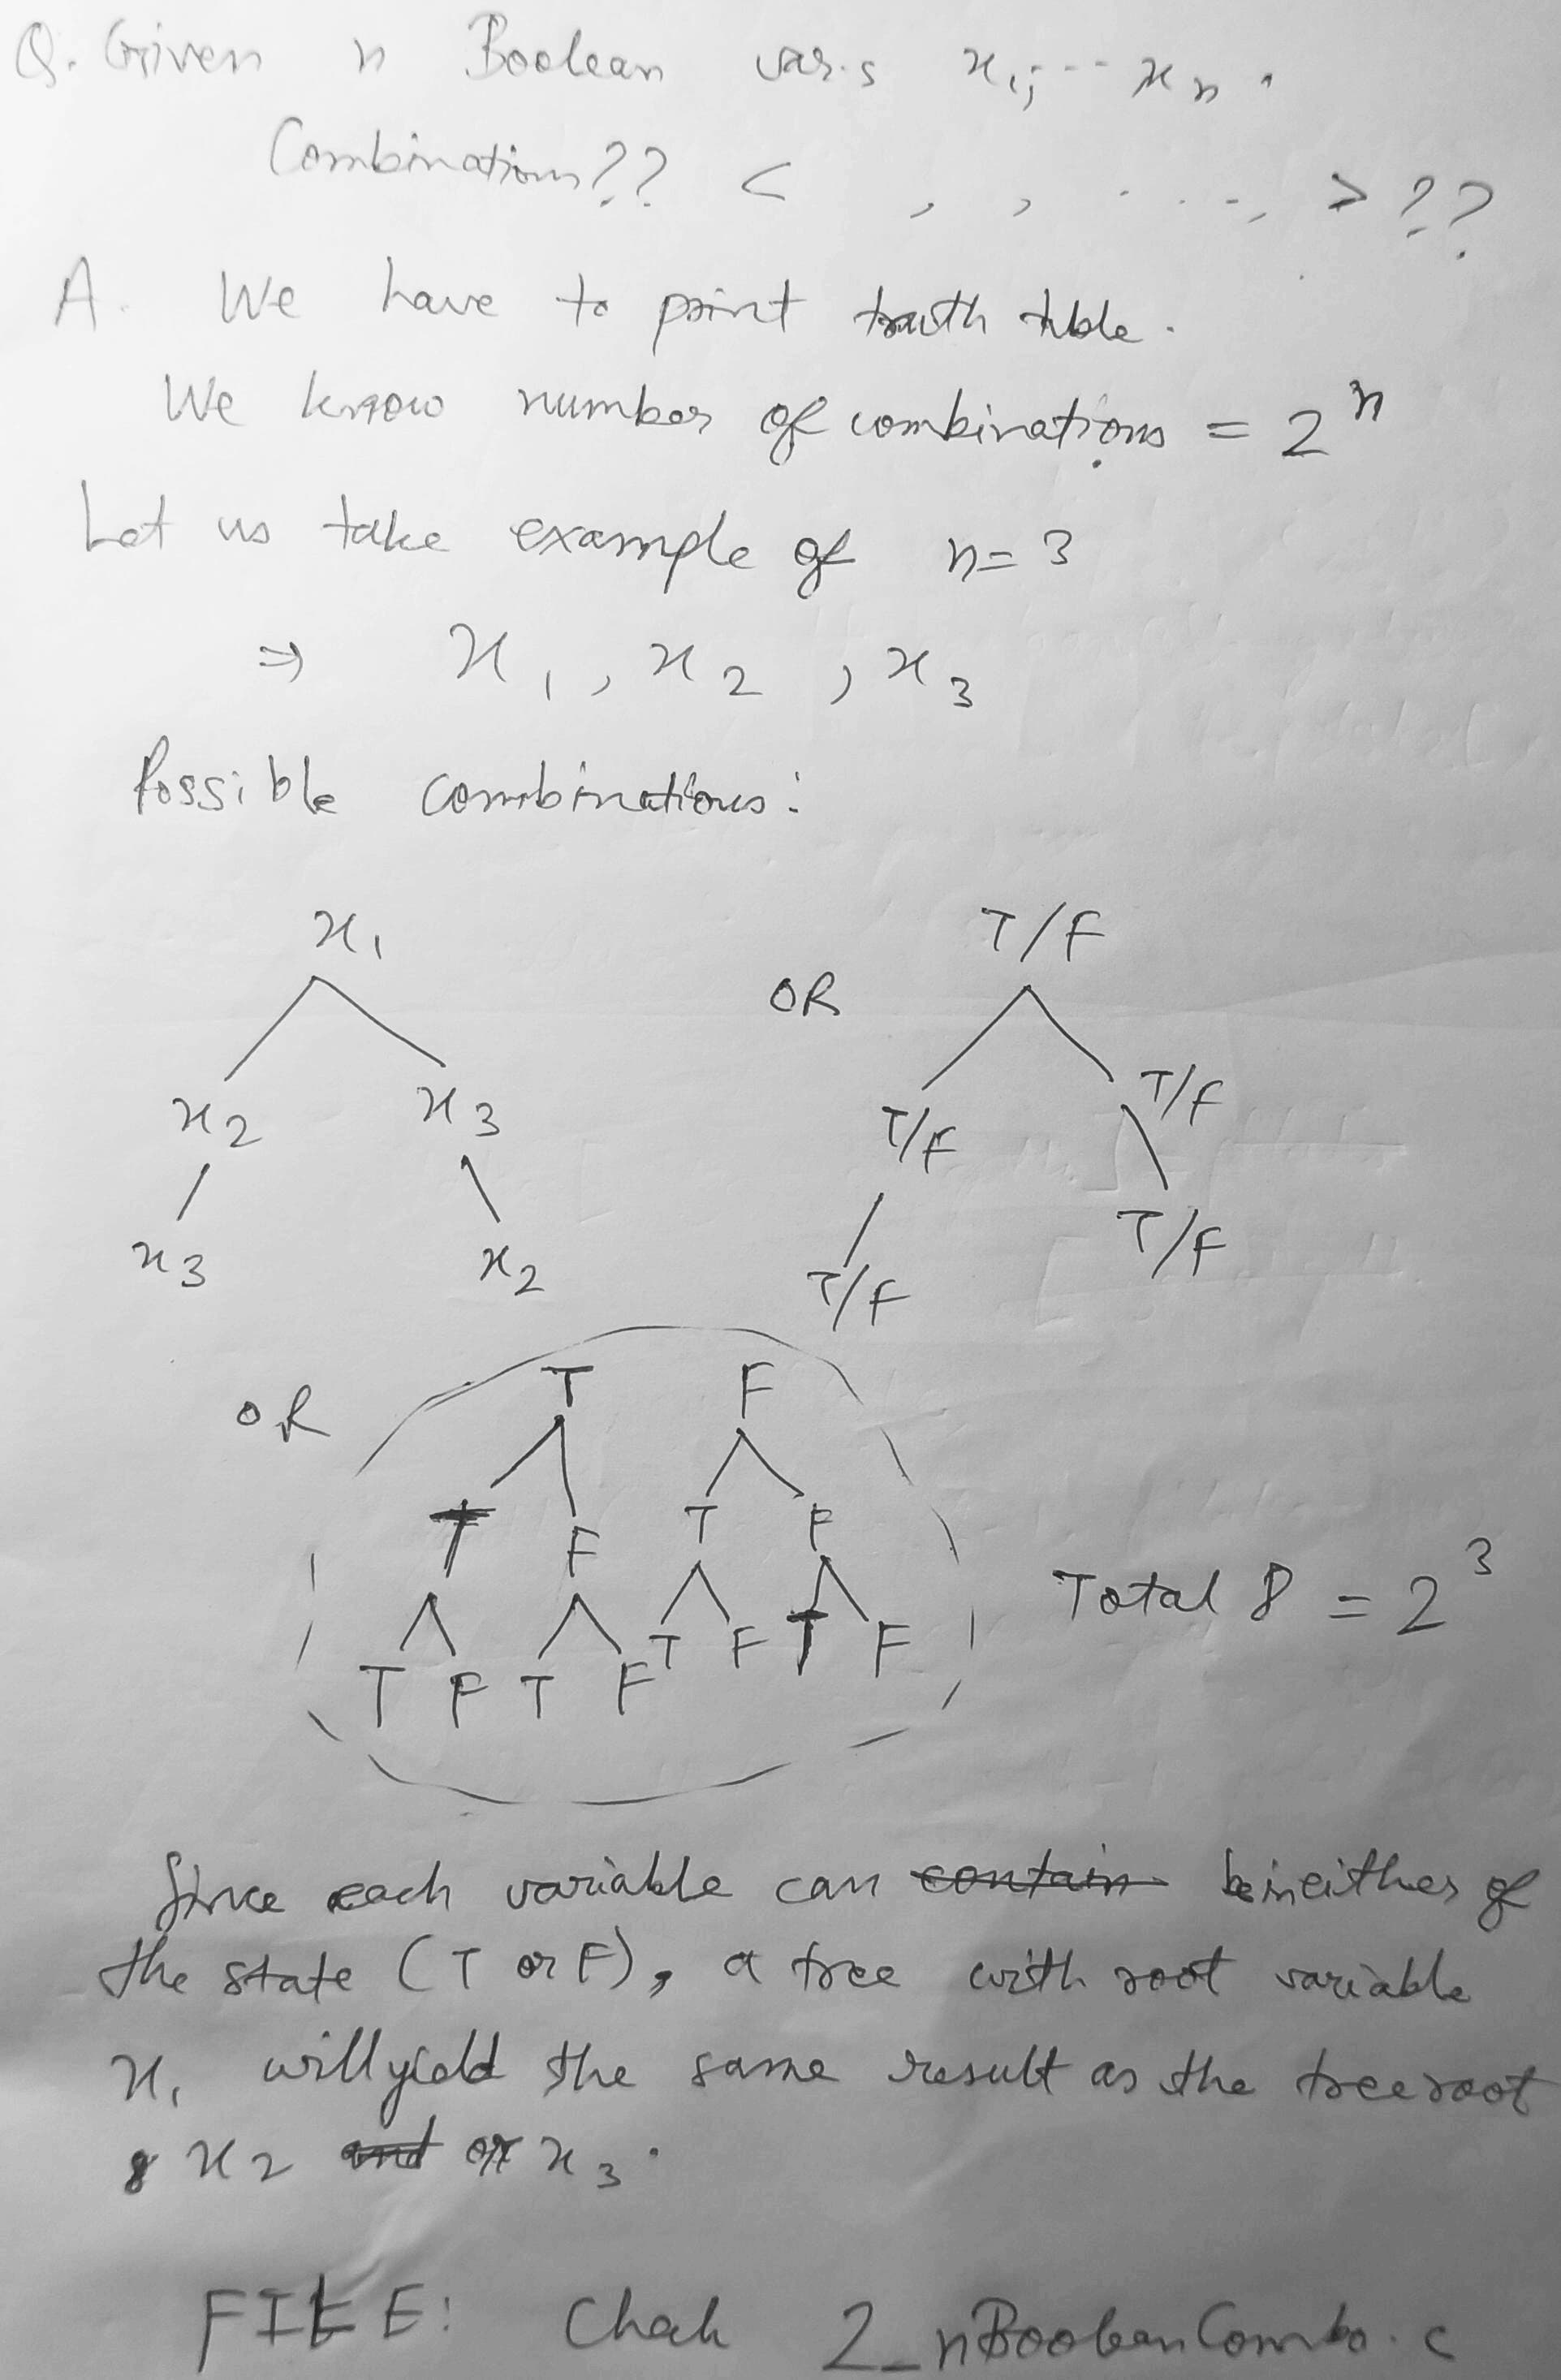 Q. Given n Boolean vars x₁, -- xₙ.
Combinations?? < , , . . . -, > ??
A. We have to print truth table.
We know number of combinations = 2ⁿ
Let us take example of n = 3
⇒ x₁, x₂, x₃
Possible combinations:
x₁
x₂ x₃
x₃ x₂
OR
T/F
T/F T/F
T/F T/F
OR
T F
T F T F
T F T F T F T F
Total 8 = 2³
Since each variable can contain be in either of
the state (T or F), a tree with root variable
x₁ will yield the same result as the tree root
x₂ and or x₃.
FILE: Check 2_nBooleanCombo.c